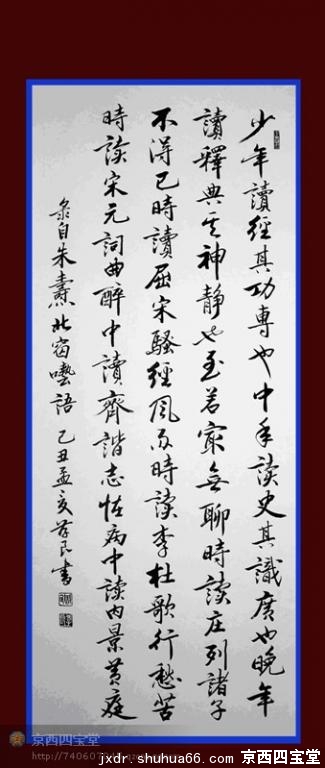 少年讀經其功專也中年读史其識廣也晚年
讀釋典其神静也至若最無聊時读庄列諸子
不得已時讀屈宋騷經風雨時读李杜歌行愁苦
時读宋元詞曲醉中讀齊諧志怪病中读内景黄庭
彔自朱燾北窗囈語 己丑孟亥 民書
京西四宝堂
jxdr.shuhua66.com 京西四宝堂